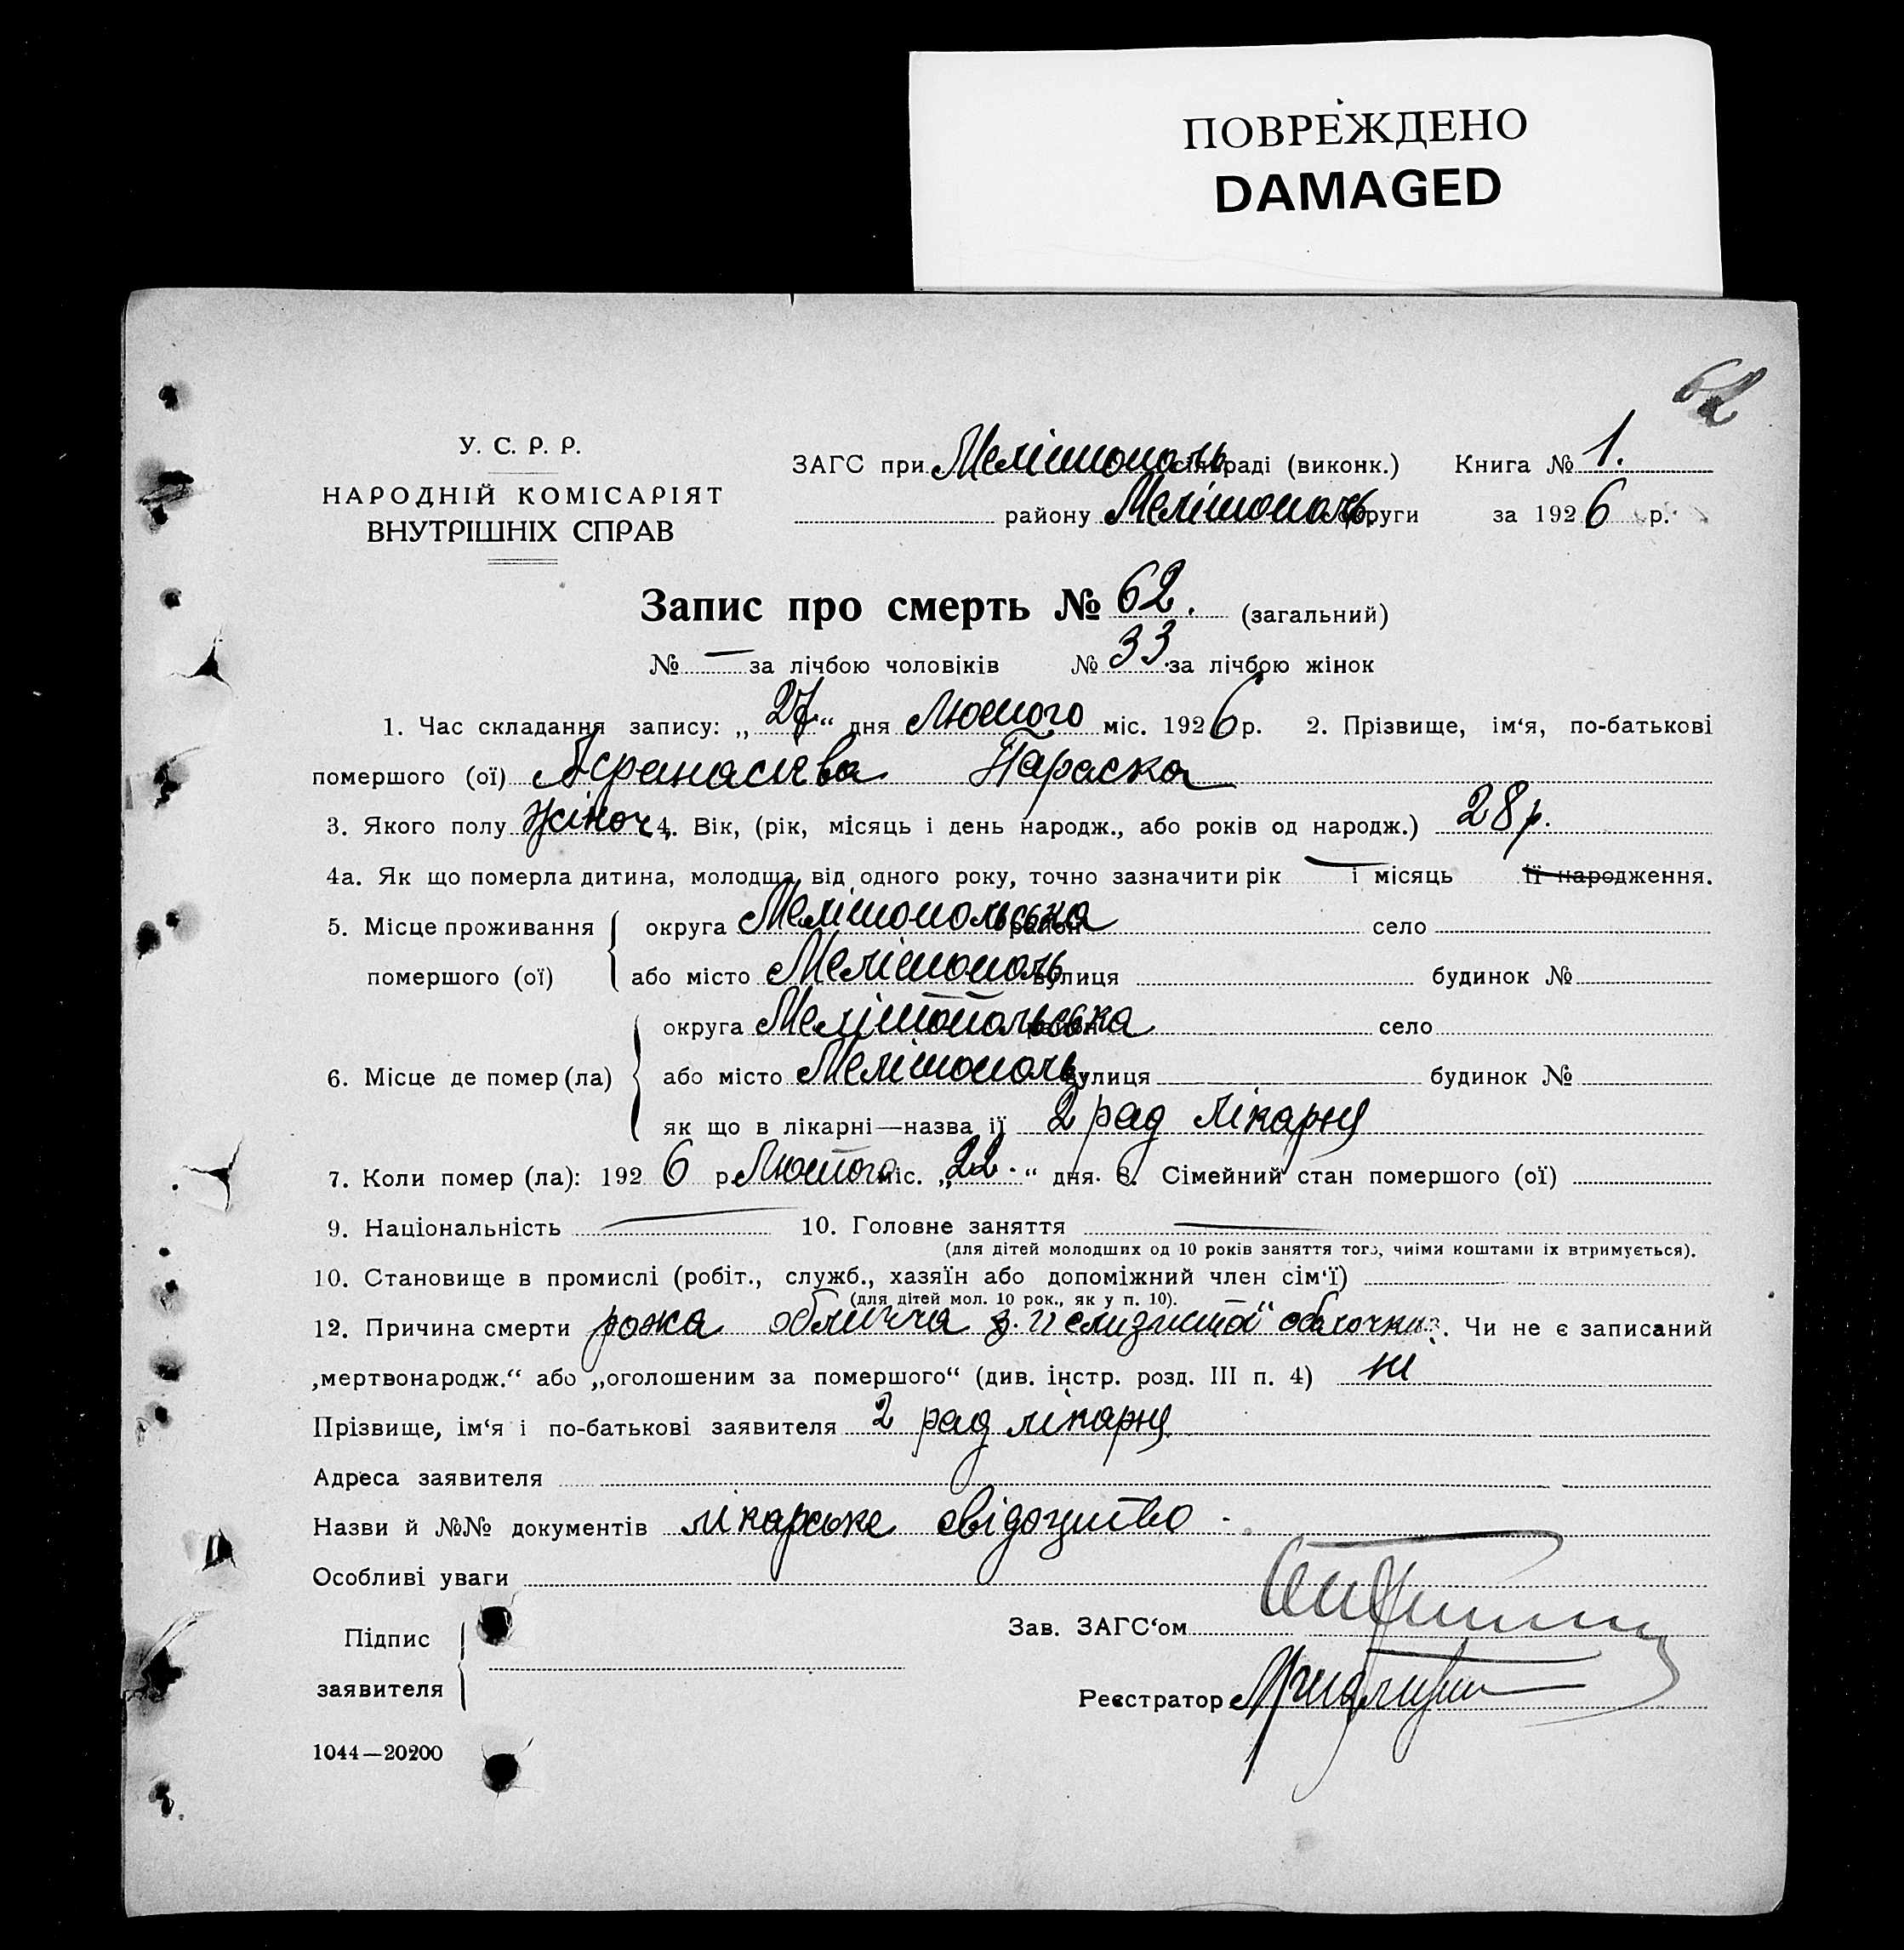 ПОВРЕЖДЕНО
DAMAGED
62
У. С. Р. Р.
НАРОДНІЙ КОМІСАРІЯТ
ВНУТРІШНІХ СПРАВ
ЗАГС при Мелітополь сільраді (виконк.) Книга № 1.
району Мелітополь округи за 1926 р.
Запис про смерть № 62. (загальний)
№ — за лічбою чоловіків № 33 за лічбою жінок
1. Час складання запису: „27“ дня Лютого міс. 1926 р. 2. Прізвище, ім‘я, по-батькові
помершого (ої) Афанасієва Параска
3. Якого полу жіноч. 4. Вік, (рік, місяць і день народж., або років од народж.) 28 р.
4а. Як що померла дитина, молодща від одного року, точно зазначити рік — і місяць її народження.
5. Місце проживання помершого (ої) округа Мелітопольська район село
або місто Мелітополь вулиця будинок №
6. Місце де помер (ла) округа Мелітопольська район село
або місто Мелітополь вулиця будинок №
як що в лікарні—назва її 2 рад лікарня
7. Коли помер (ла): 1926 р Лютого міс. „22.“ дня. 8. Сімейний стан помершого (ої)
9. Національність — 10. Головне заняття —
(для дітей молодших од 10 років заняття того, чиїми коштами їх втримується).
10. Становище в промислі (робіт., служб., хазяїн або допоміжний член сім‘ї)
(для дітей мол. 10 рок., як у п. 10).
12. Причина смерти рожа обличча з. її слизистої оболочки 13. Чи не є записаний
„мертвонародж.“ або „оголошеним за помершого“ (див. інстр. розд. III п. 4) ні
Прізвище, ім‘я і по-батькові заявителя 2 рад лікарня
Адреса заявителя
Назви й №№ документів лікарське свідоцтво
Особливі уваги
Підпис
заявителя
Зав. ЗАГС‘ом
Реєстратор
1044—20200